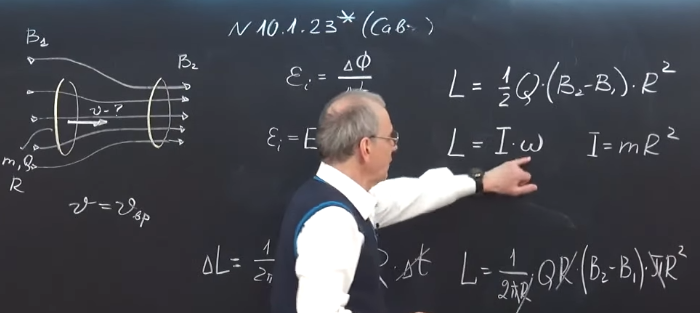 N 10.1.23* (Сав
B₁
B₂
v-?
m, Q
R
v = v вр
ℰᵢ = ΔΦ
ℰᵢ = E
L = 1/2 Q·(B₂-B₁)·R²
L = I·ω I = mR²
ΔL = 1/2π · Δt
L = 1/2πR QR·(B₂-B₁)·πR²